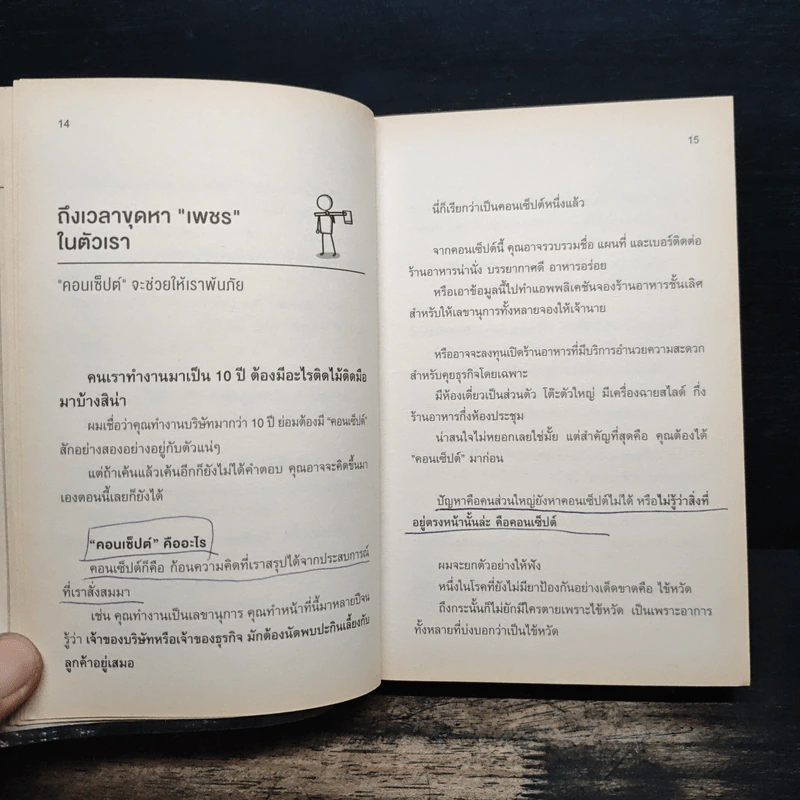 14
ถึงเวลาขุดหา "เพชร"
ในตัวเรา
"คอนเซ็ปต์" จะช่วยให้เราพ้นภัย
คนเราทำงานมาเป็น 10 ปี ต้องมีอะไรติดไม้ติดมือ
มาบ้างสิน่า
ผมเชื่อว่าคุณทำงานบริษัทมากว่า 10 ปี ย่อมต้องมี "คอนเซ็ปต์"
สักอย่างสองอย่างอยู่กับตัวแน่ๆ
แต่ถ้าเค้นแล้วเค้นอีกก็ยังไม่ได้คำตอบ คุณอาจจะคิดขึ้นมา
เองตอนนี้เลยก็ยังได้
"คอนเซ็ปต์" คืออะไร
คอนเซ็ปต์ก็คือ ก้อนความคิดที่เราสรุปได้จากประสบการณ์
ที่เราสั่งสมมา
เช่น คุณทำงานเป็นเลขานุการ คุณทำหน้าที่นี้มาหลายปีจน
รู้ว่า เจ้าของบริษัทหรือเจ้าของธุรกิจ มักต้องนัดพบปะกินเลี้ยงกับ
ลูกค้าอยู่เสมอ
15
นี่ก็เรียกว่าเป็นคอนเซ็ปต์หนึ่งแล้ว
จากคอนเซ็ปต์นี้ คุณอาจรวบรวมชื่อ แผนที่ และเบอร์ติดต่อ
ร้านอาหารน่านั่ง บรรยากาศดี อาหารอร่อย
หรือเอาข้อมูลนี้ไปทำแอพพลิเคชันจองร้านอาหารชั้นเลิศ
สำหรับให้เลขานุการทั้งหลายจองให้เจ้านาย
หรืออาจจะลงทุนเปิดร้านอาหารที่มีบริการอำนวยความสะดวก
สำหรับคุยธุรกิจโดยเฉพาะ
มีห้องเดี่ยวเป็นส่วนตัว โต๊ะตัวใหญ่ มีเครื่องฉายสไลด์ กึ่ง
ร้านอาหารกึ่งห้องประชุม
น่าสนใจไม่หยอกเลยใช่มั้ย แต่สำคัญที่สุดคือ คุณต้องได้
"คอนเซ็ปต์" มาก่อน
ปัญหาคือคนส่วนใหญ่ยังหาคอนเซ็ปต์ไม่ได้ หรือไม่รู้ว่าสิ่งที่
อยู่ตรงหน้านั้นล่ะ คือคอนเซ็ปต์
ผมจะยกตัวอย่างให้ฟัง
หนึ่งในโรคที่ยังไม่มียาป้องกันอย่างเด็ดขาดคือ ไข้หวัด
ถึงกระนั้นก็ไม่ยักมีใครตายเพราะไข้หวัด เป็นเพราะอาการ
ทั้งหลายที่บ่งบอกว่าเป็นไข้หวัด